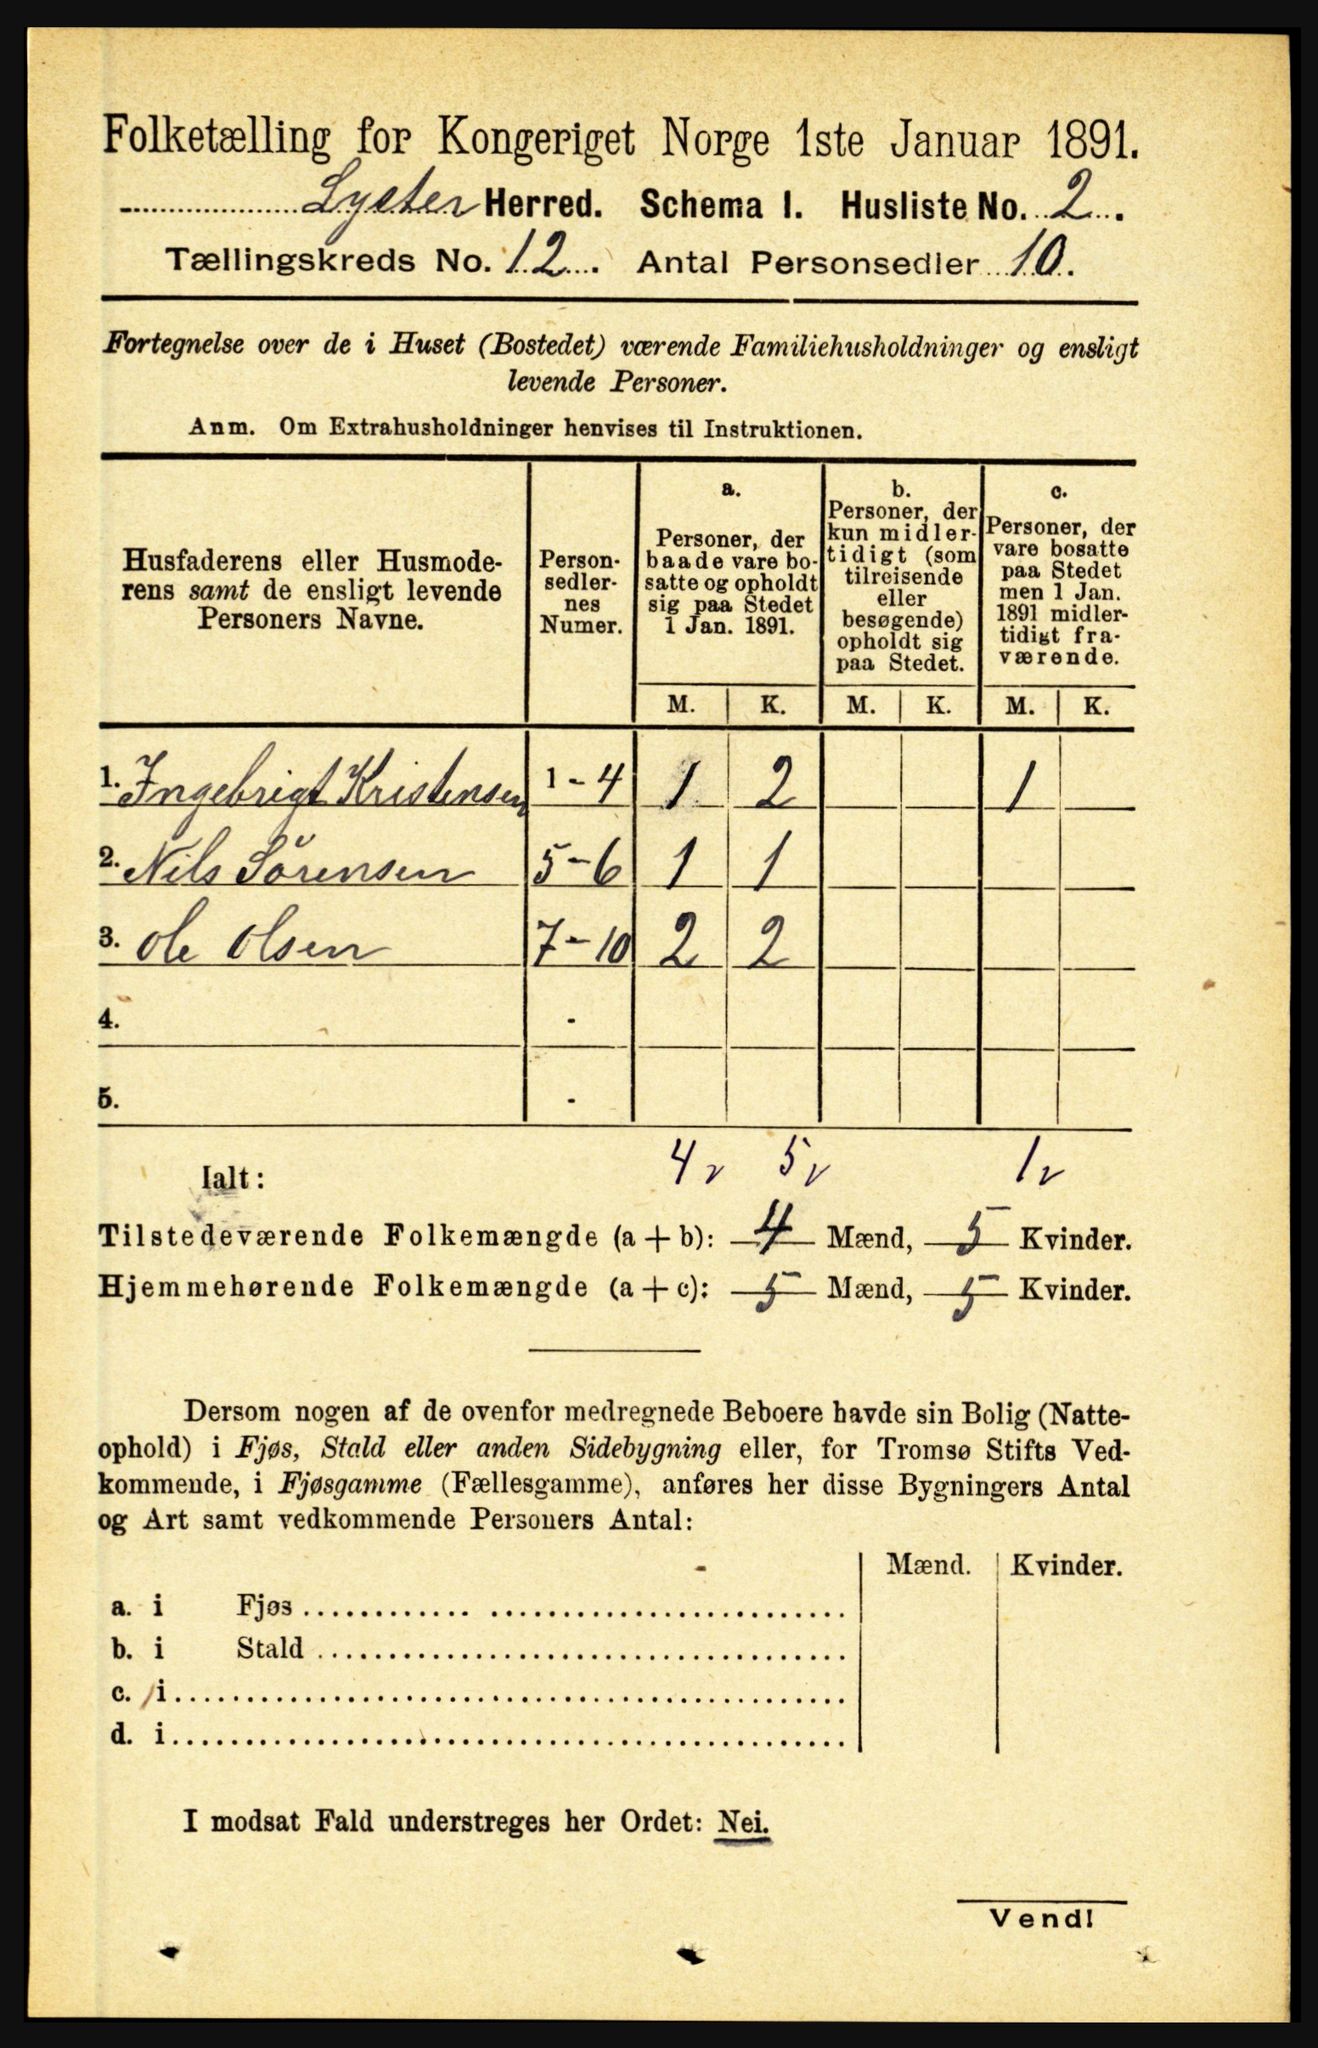 Folketælling for Kongeriget Norge 1ste Januar 1891.
Lyster Herred. Schema I. Husliste No. 2.
Tællingskreds No. 12. Antal Personsedler 10.
Fortegnelse over de i Huset (Bostedet) værende Familiehusholdninger og ensligt
levende Personer.
Anm. Om Extrahusholdninger henvises til Instruktionen.
Husfaderens eller Husmode-
rens samt de ensligt levende
Personers Navne.
Person-
sedler-
nes
Numer.
a.
Personer, der
baade vare bo-
satte og opholdt
sig paa Stedet
1 Jan. 1891.
b.
Personer, der
kun midler-
tidigt (som
tilreisende
eller
besøgende)
opholdt sig
paa Stedet.
c.
Personer, der
vare bosatte
paa Stedet
men 1 Jan.
1891 midler-
tidigt fra-
værende.
M. K. M. K. M. K.
1. Ingebrigt Kristensen 1-4 1 2 1
2. Nils Sörensen 5-6 1 1
3. Ole Olsen 7-10 2 2
4. -
5. -
Ialt: 4 v 5 v 1 v
Tilstedeværende Folkemængde (a + b): 4 Mænd, 5 Kvinder.
Hjemmehørende Folkemængde (a + c): 5 Mænd, 5 Kvinder.
Dersom nogen af de ovenfor medregnede Beboere havde sin Bolig (Natte-
ophold) i Fjøs, Stald eller anden Sidebygning eller, for Tromsø Stifts Ved-
kommende, i Fjøsgamme (Fællesgamme), anføres her disse Bygningers Antal
og Art samt vedkommende Personers Antal:
Mænd. Kvinder.
a. i Fjøs
b. i Stald
c. i
d. i
I modsat Fald understreges her Ordet: Nei.
Vend!